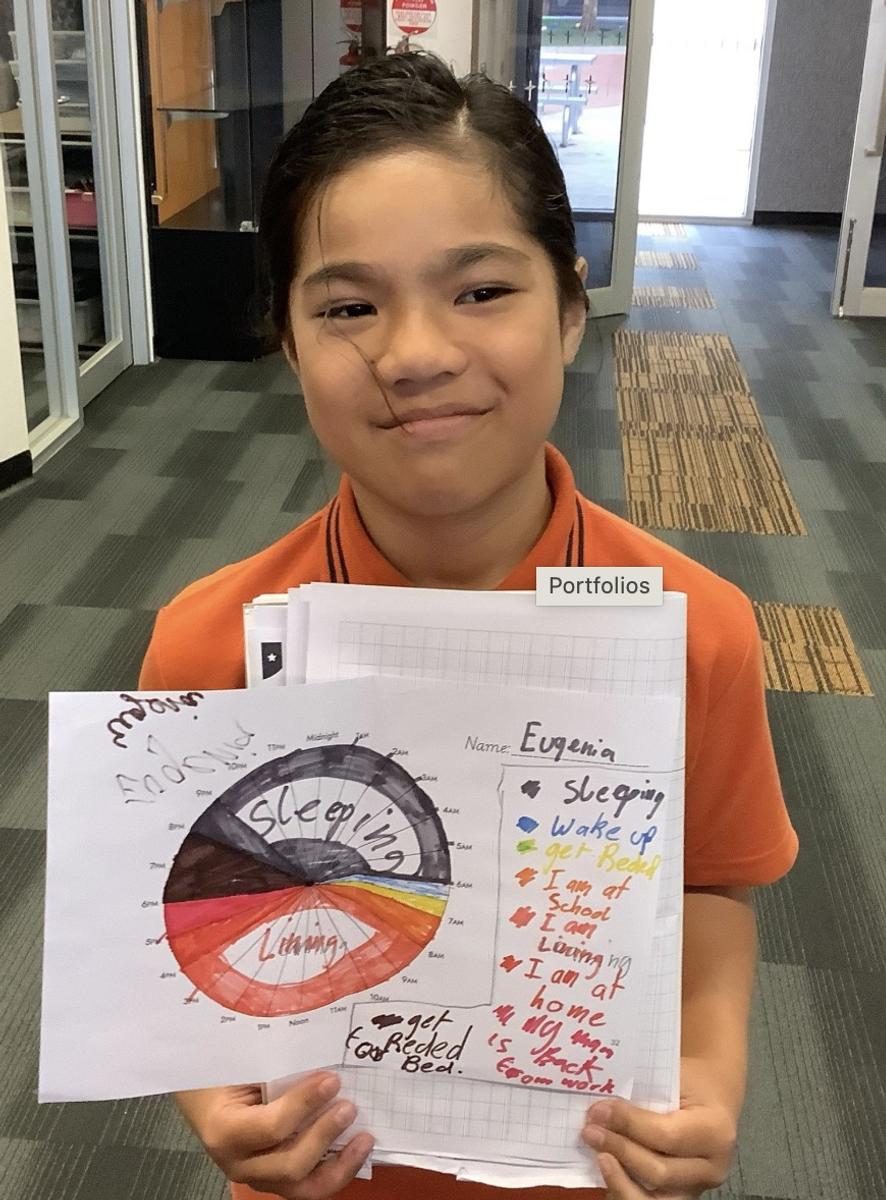 POWDER
Portfolios
Name: Eugenia
Midnight
1AM
2AM
3AM
4AM
5AM
6AM
7AM
8AM
9AM
10AM
11AM
Noon
1PM
2PM
3PM
4PM
5PM
6PM
7PM
8PM
9PM
10PM
11PM
Sleeping
Lining
Sleeping
wake up
get Reded
I am at
School
I am
Lining ng
I am at
home
My man
is back
from work
get
Reded
For
Bed.
32